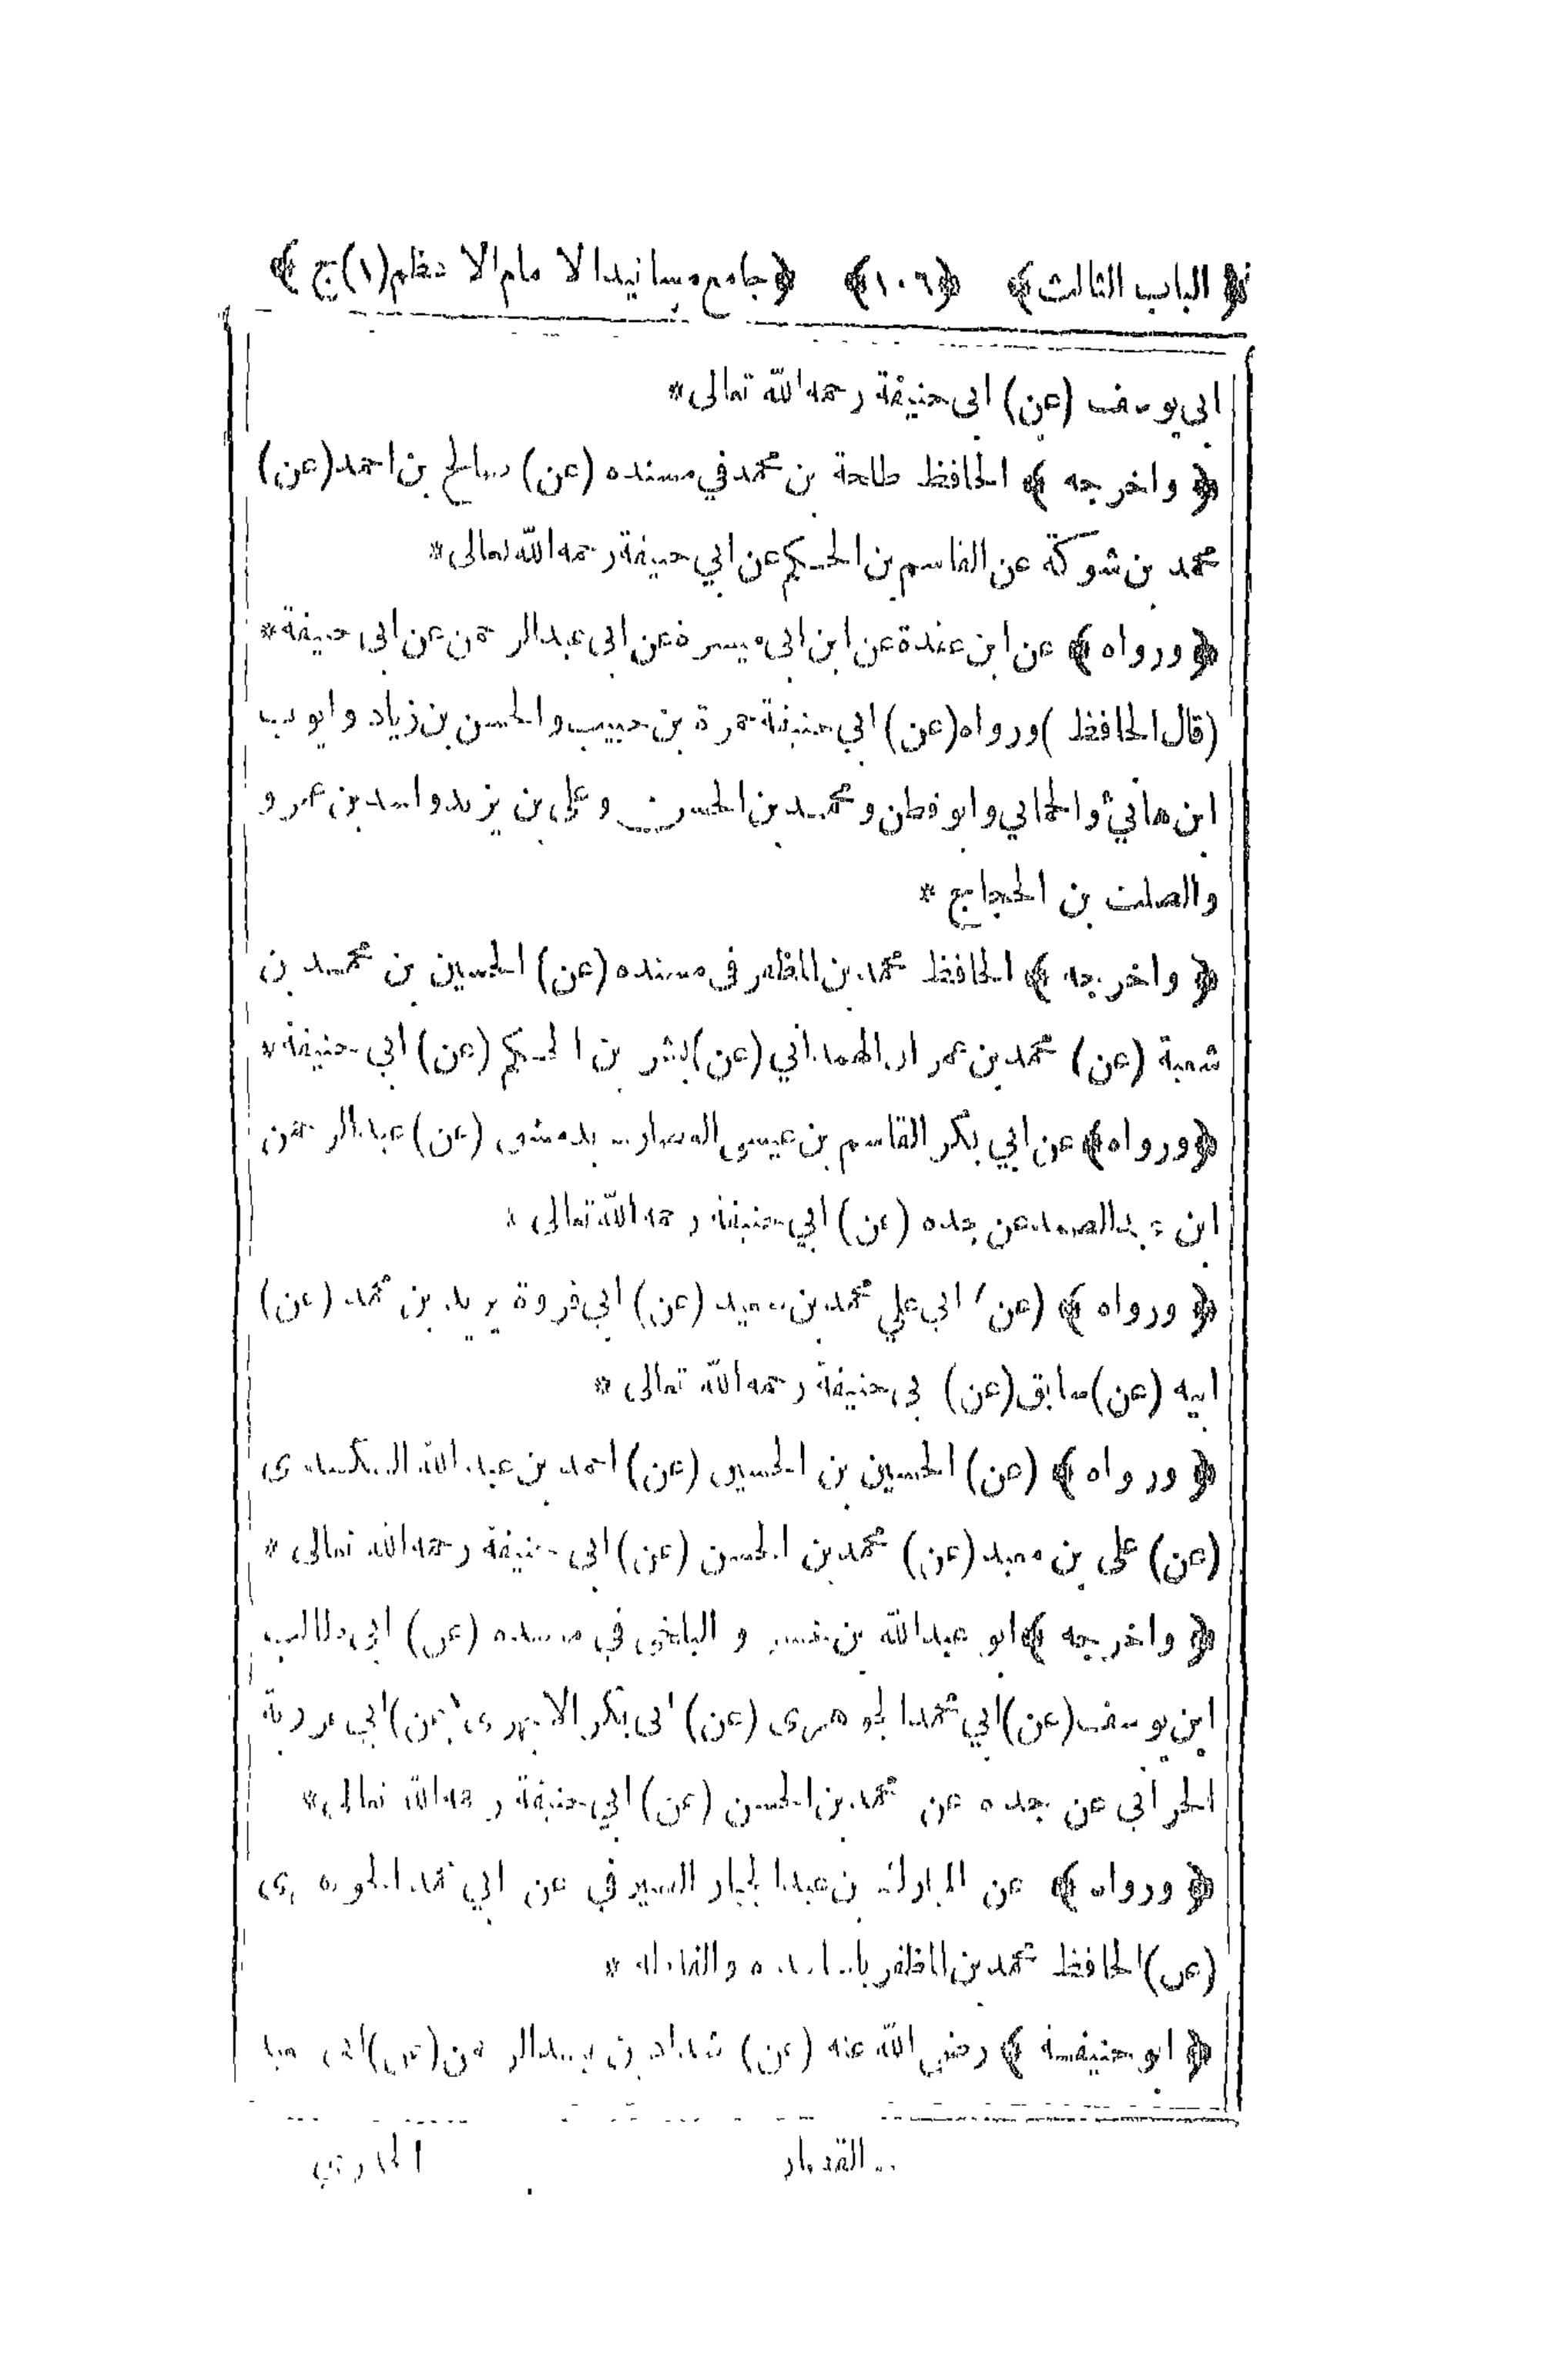 ﴿الباب الثالث﴾ ﴿١٠٦﴾ ﴿جامع مسانيد الامام الاعظم(١)ج﴾
ابى يوسف (عن) ابى حنيفة رحمه الله تعالى*
﴿واخرجه﴾ الحافظ طلحة بن محمد في مسنده (عن) صالح بن احمد (عن)
محمد بن شوكة عن القاسم بن الحكم عن ابي حنيفة رحمه الله تعالى*
﴿ورواه﴾ عن ابن عقدة عن ابن ابى ميسرة عن ابى عبدالرحمن عن ابى حنيفة*
(قال الحافظ) ورواه (عن) ابي حنيفة حمزة بن حبيب والحسن بن زياد وايوب
ابن هانئ والحماني وابو قطن ومحمد بن الحسن وعلى بن يزيد واسد بن عمرو
والصلت بن الحجاج *
﴿واخرجه﴾ الحافظ محمد بن المظفر فى مسنده (عن) الحسين بن محمد بن
شعبة (عن) محمد بن عمران الهمداني (عن) بشر بن الحكم (عن) ابي حنيفة*
﴿ورواه﴾ عن ابي بكر القاسم بن عيسى بدمشق (عن) عبدالرحمن
ابن عبدالصمد عن جده (عن) ابي حنيفة رحمه الله تعالى *
﴿ورواه﴾ (عن) ابي علي محمد بن سعيد (عن) ابي فروة يزيد بن محمد (عن)
ابيه (عن) سابق (عن) ابى حنيفة رحمه الله تعالى *
﴿ورواه﴾ (عن) الحسين بن الحسين (عن) احمد بن عبد الله الكندى
(عن) على بن معبد (عن) محمد بن الحسن (عن) ابى حنيفة رحمه الله تعالى *
﴿واخرجه﴾ ابو عبدالله بن خسرو البلخى في مسنده (عن) ابى طالب
ابن يوسف (عن) ابي محمد الجوهرى (عن) ابى بكر الابهرى (عن) ابي عروبة
الحرانى عن جده عن محمد بن الحسن (عن) ابي حنيفة رحمه الله تعالى*
﴿ورواه﴾ عن المبارك بن عبدالجبار الصيرفي عن ابي محمد الجوهرى
(عن) الحافظ محمد بن المظفر باسانيده والفاظه *
﴿ابو حنيفة﴾ رضي الله عنه (عن) شداد بن عبدالرحمن (عن) ابى سعيد
الخدري